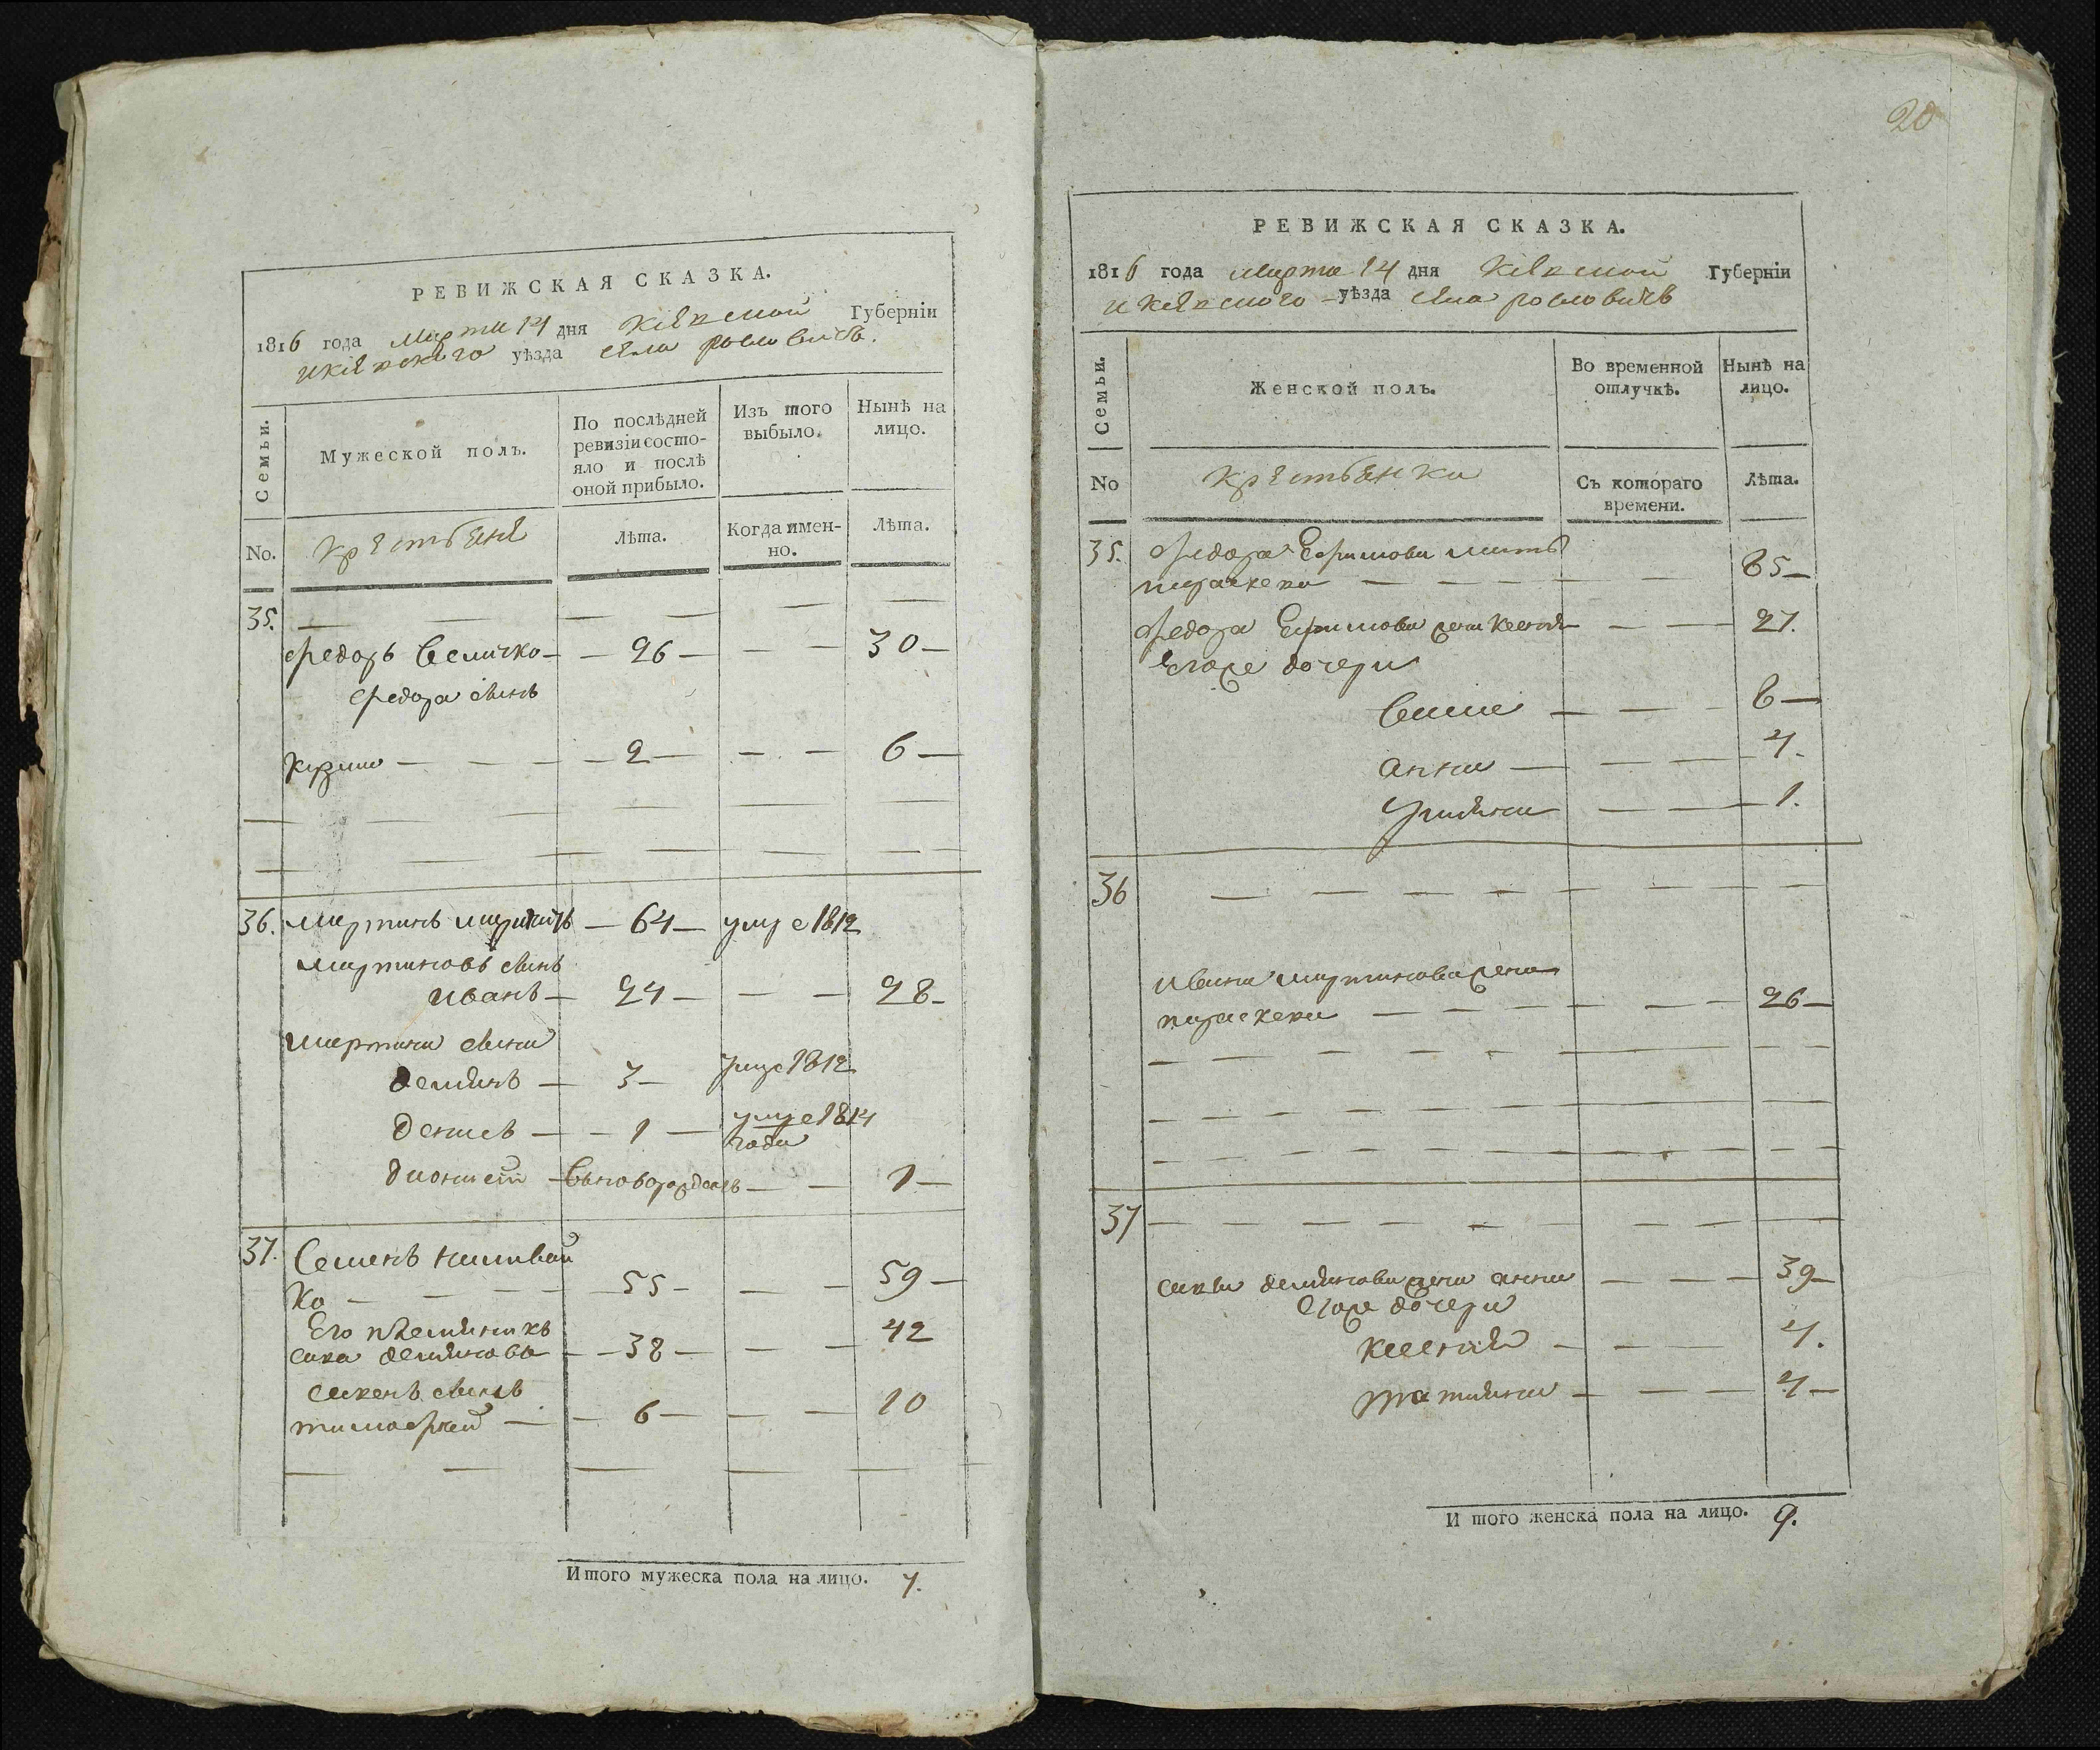 РЕВИЖСКАЯ СКАЗКА.
1816 года Марта 14 дня Кіевской Губерніи
и Кіевского уѣзда села рословичь.
Семьи.
Мужеской полъ.
По послѣдней
ревизіи состо-
яло и послѣ
оной прибыло.
Изъ того
выбыло.
Нынѣ на
лицо.
No.
Крестьяне
Лѣта.
Когда имен-
но.
Лѣта.
35.
Федоръ Величко 26 30
Федора сынъ
2 6
36. Мартинъ 64 умре 1812
Мартиновъ сынъ
Иванъ 24 28
Мартина сини
Демянъ 3 умре 1812
Денисъ 1 умре 1814
года
Дионисій вноворожденъ 1
37. Семенъ Наливай
ко 55 59
Его племяникъ
Сава Демяновъ 38 42
Савенъ сынъ
тимофей 6 10
Итого мужеска пола на лицо. 7.
20
РЕВИЖСКАЯ СКАЗКА.
1816 года Марта 14 дня Кіевской Губерніи
и Кіевского уѣзда села рословичь
Семьи.
Женской полъ.
Во временной
отлучкѣ.
Нынѣ на
лицо.
No
Крестьянки
Съ котораго
времени.
Лѣта.
35. Федора Ефимова мать
параскева 65
Федора Ефимова жена Ксенія 27.
Егоже дочери
6
анна 4.
Уліяна 1.
36
Ивана Мартинова жена
параскева 26
37
Савы Демянова жена анна 39
Егоже дочери
Ксенія 4.
татіяна 4
И того женска пола на лицо. 9.